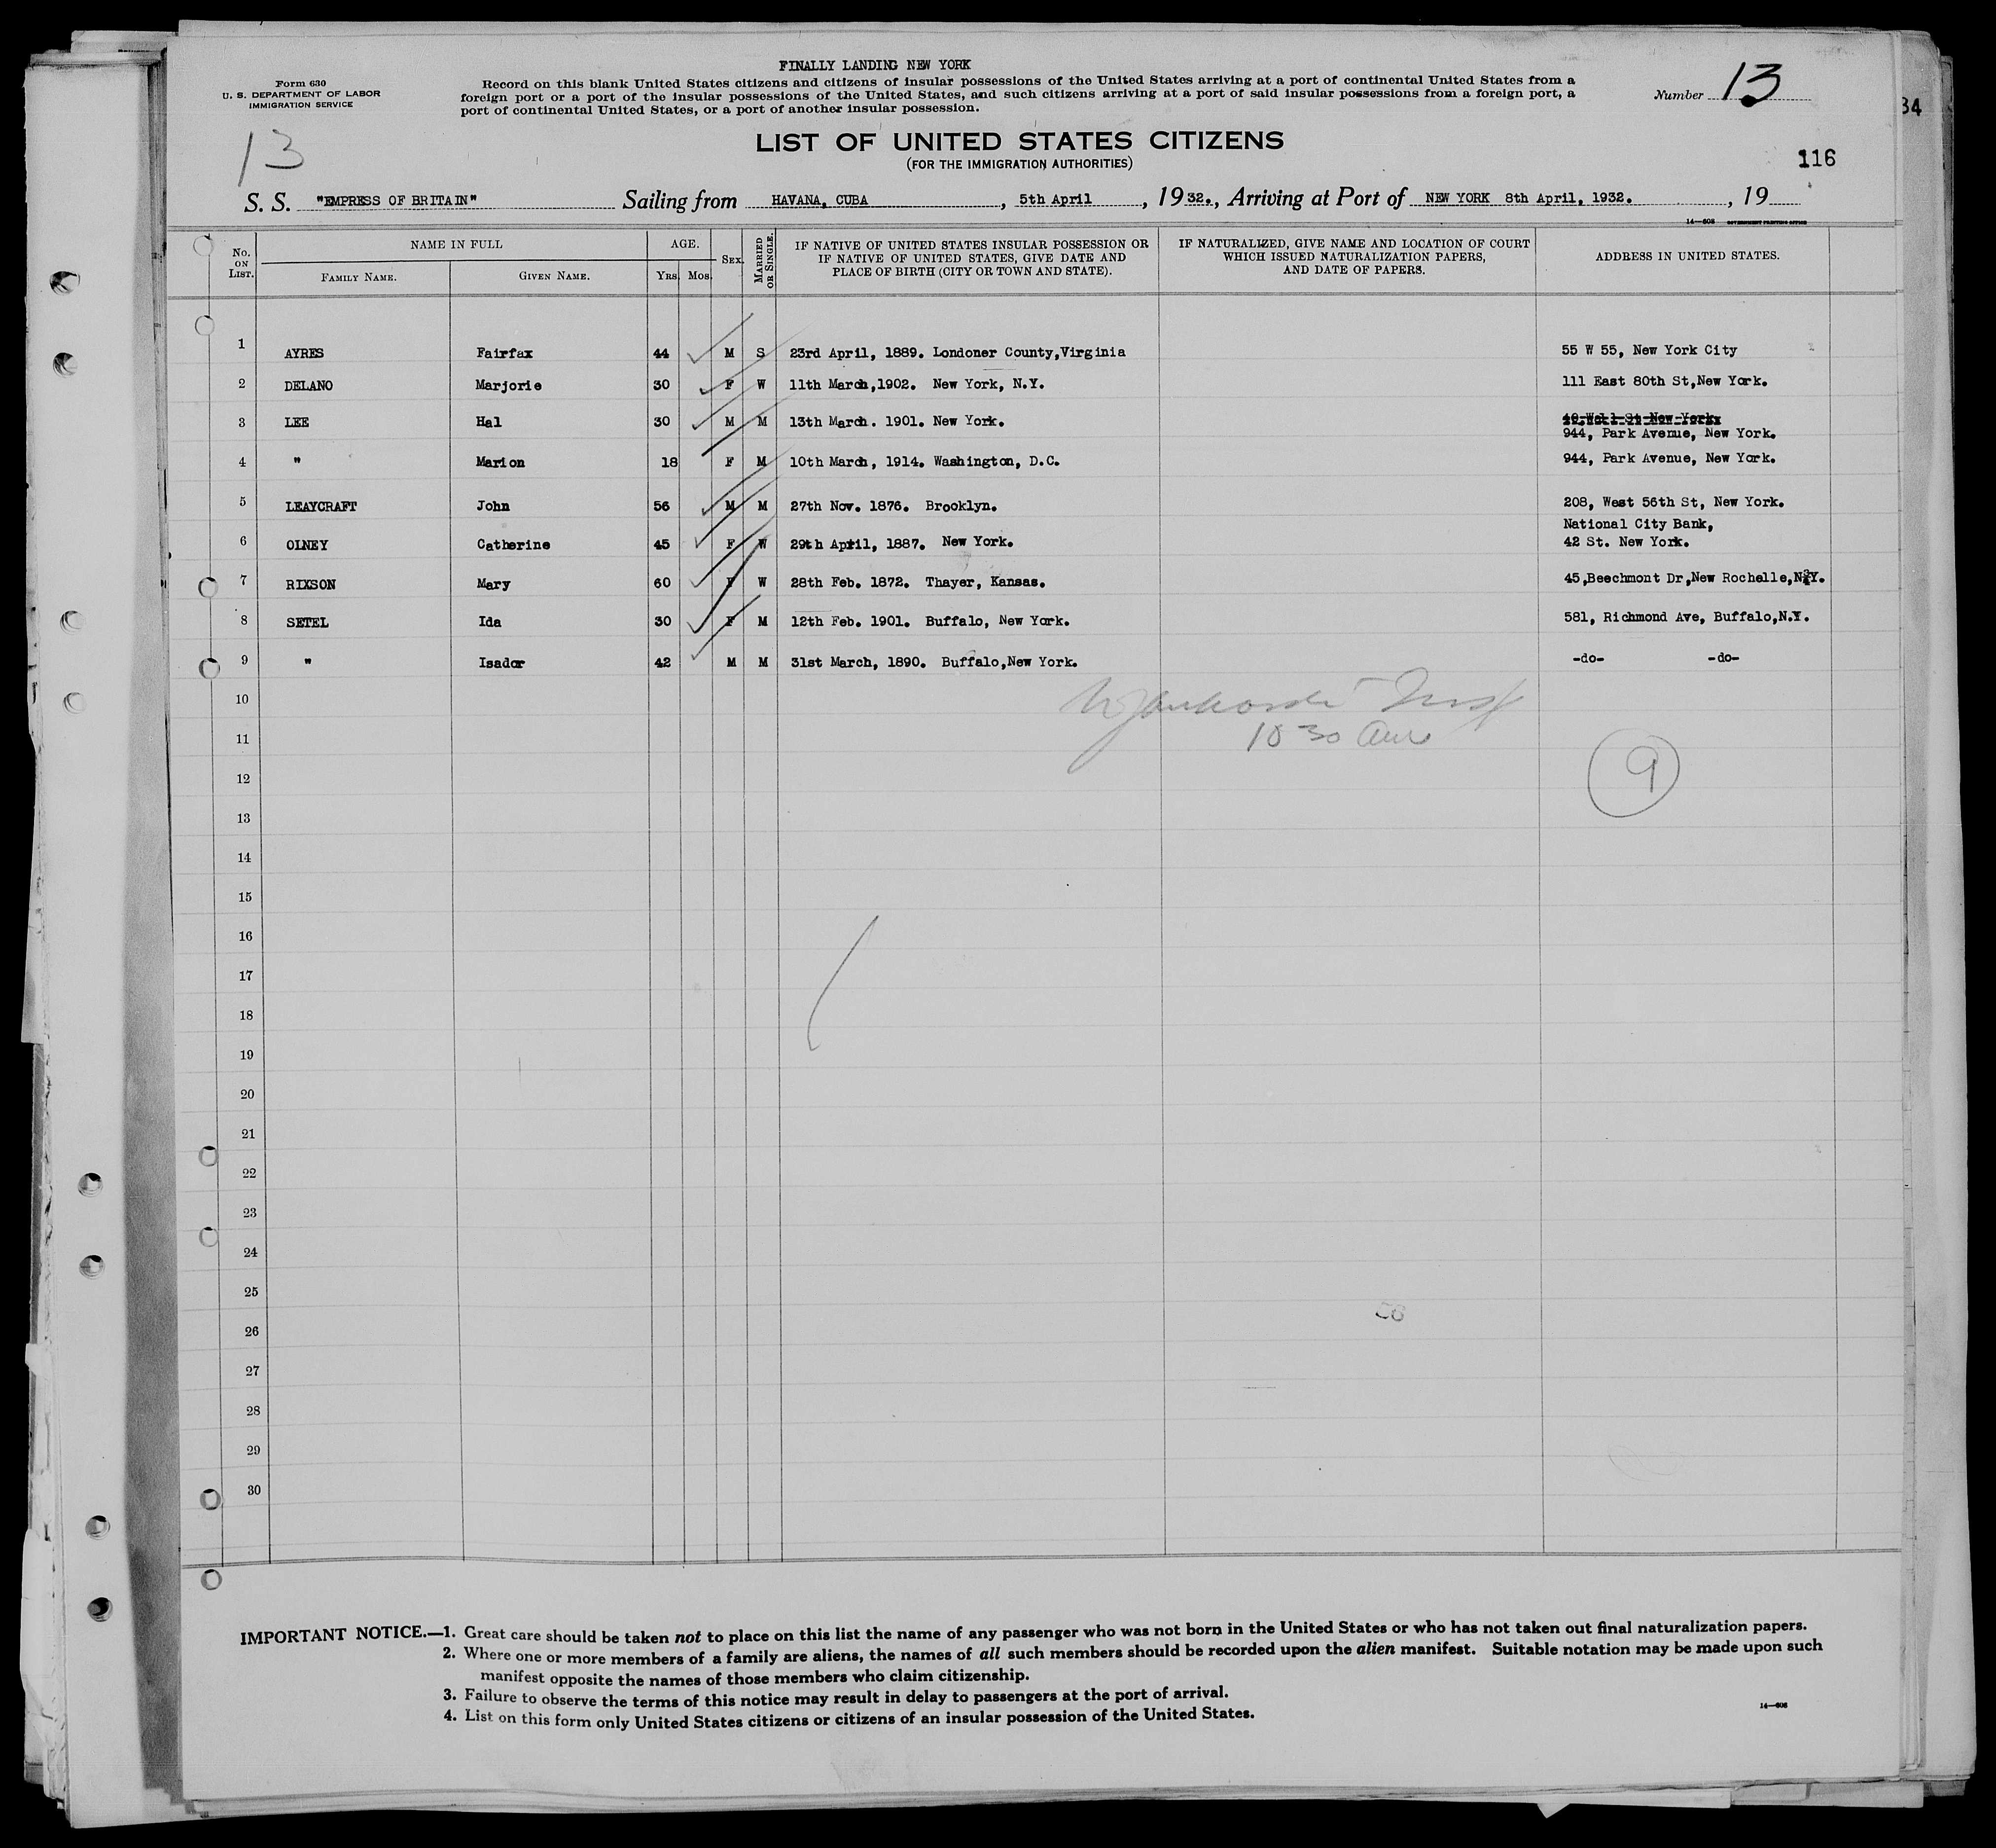 FINALLY LANDING NEW YORK
Form 630
U. S. DEPARTMENT OF LABOR
IMMIGRATION SERVICE
Record on this blank United States citizens and citizens of insular possessions of the United States arriving at a port of continental United States from a
foreign port or a port of the insular possessions of the United States, and such citizens arriving at a port of said insular possessions from a foreign port, a
port of continental United States, or a port of another insular possession.
Number 13
34
13
LIST OF UNITED STATES CITIZENS
(FOR THE IMMIGRATION AUTHORITIES)
116
S. S. "EMPRESS OF BRITAIN" Sailing from HAVANA, CUBA, 5th April, 1932., Arriving at Port of NEW YORK 8th April, 1932., 19
14—608 GOVERNMENT PRINTING OFFICE
No. ON LIST. NAME IN FULL FAMILY NAME. GIVEN NAME. AGE. YRS. MOS. SEX. MARRIED OR SINGLE. IF NATIVE OF UNITED STATES INSULAR POSSESSION OR IF NATIVE OF UNITED STATES, GIVE DATE AND PLACE OF BIRTH (CITY OR TOWN AND STATE). IF NATURALIZED, GIVE NAME AND LOCATION OF COURT WHICH ISSUED NATURALIZATION PAPERS, AND DATE OF PAPERS. ADDRESS IN UNITED STATES.
1 AYRES Fairfax 44 M S 23rd April, 1889. Londoner County,Virginia 55 W 55, New York City
2 DELANO Marjorie 30 F W 11th March,1902. New York, N.Y. 111 East 80th St,New York.
3 LEE Hal 30 M M 13th March. 1901. New York. 40 Wall St New York
944, Park Avenue, New York.
4 " Marion 18 F M 10th March, 1914. Washington, D.C. 944, Park Avenue, New York.
5 LEAYCRAFT John 56 M M 27th Nov. 1876. Brooklyn. 208, West 56th St, New York.
National City Bank,
6 OLNEY Catherine 45 F W 29th April, 1887. New York. 42 St. New York.
7 RIXSON Mary 60 F W 28th Feb. 1872. Thayer, Kansas. 45,Beechmont Dr,New Rochelle,N.Y.
8 SETEL Ida 30 F M 12th Feb. 1901. Buffalo, New York. 581, Richmond Ave, Buffalo,N.Y.
9 " Isador 42 M M 31st March, 1890. Buffalo,New York. -do- -do-
10
11 10 30 am
12 9
13
14
15
16
17
18
19
20
21
22
23
24
25
26
27
28
29
30
IMPORTANT NOTICE.—1. Great care should be taken not to place on this list the name of any passenger who was not born in the United States or who has not taken out final naturalization papers.
2. Where one or more members of a family are aliens, the names of all such members should be recorded upon the alien manifest. Suitable notation may be made upon such
manifest opposite the names of those members who claim citizenship.
3. Failure to observe the terms of this notice may result in delay to passengers at the port of arrival.
4. List on this form only United States citizens or citizens of an insular possession of the United States.
14—608